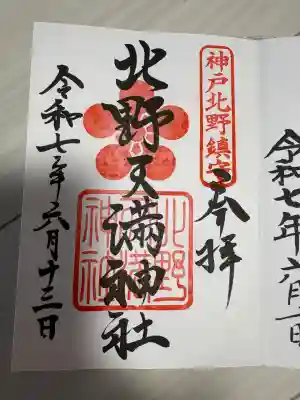 令和七年六月
神戸北野鎮守
参拝
北野天満神社
北野
天満
神社
令和七年六月十三日